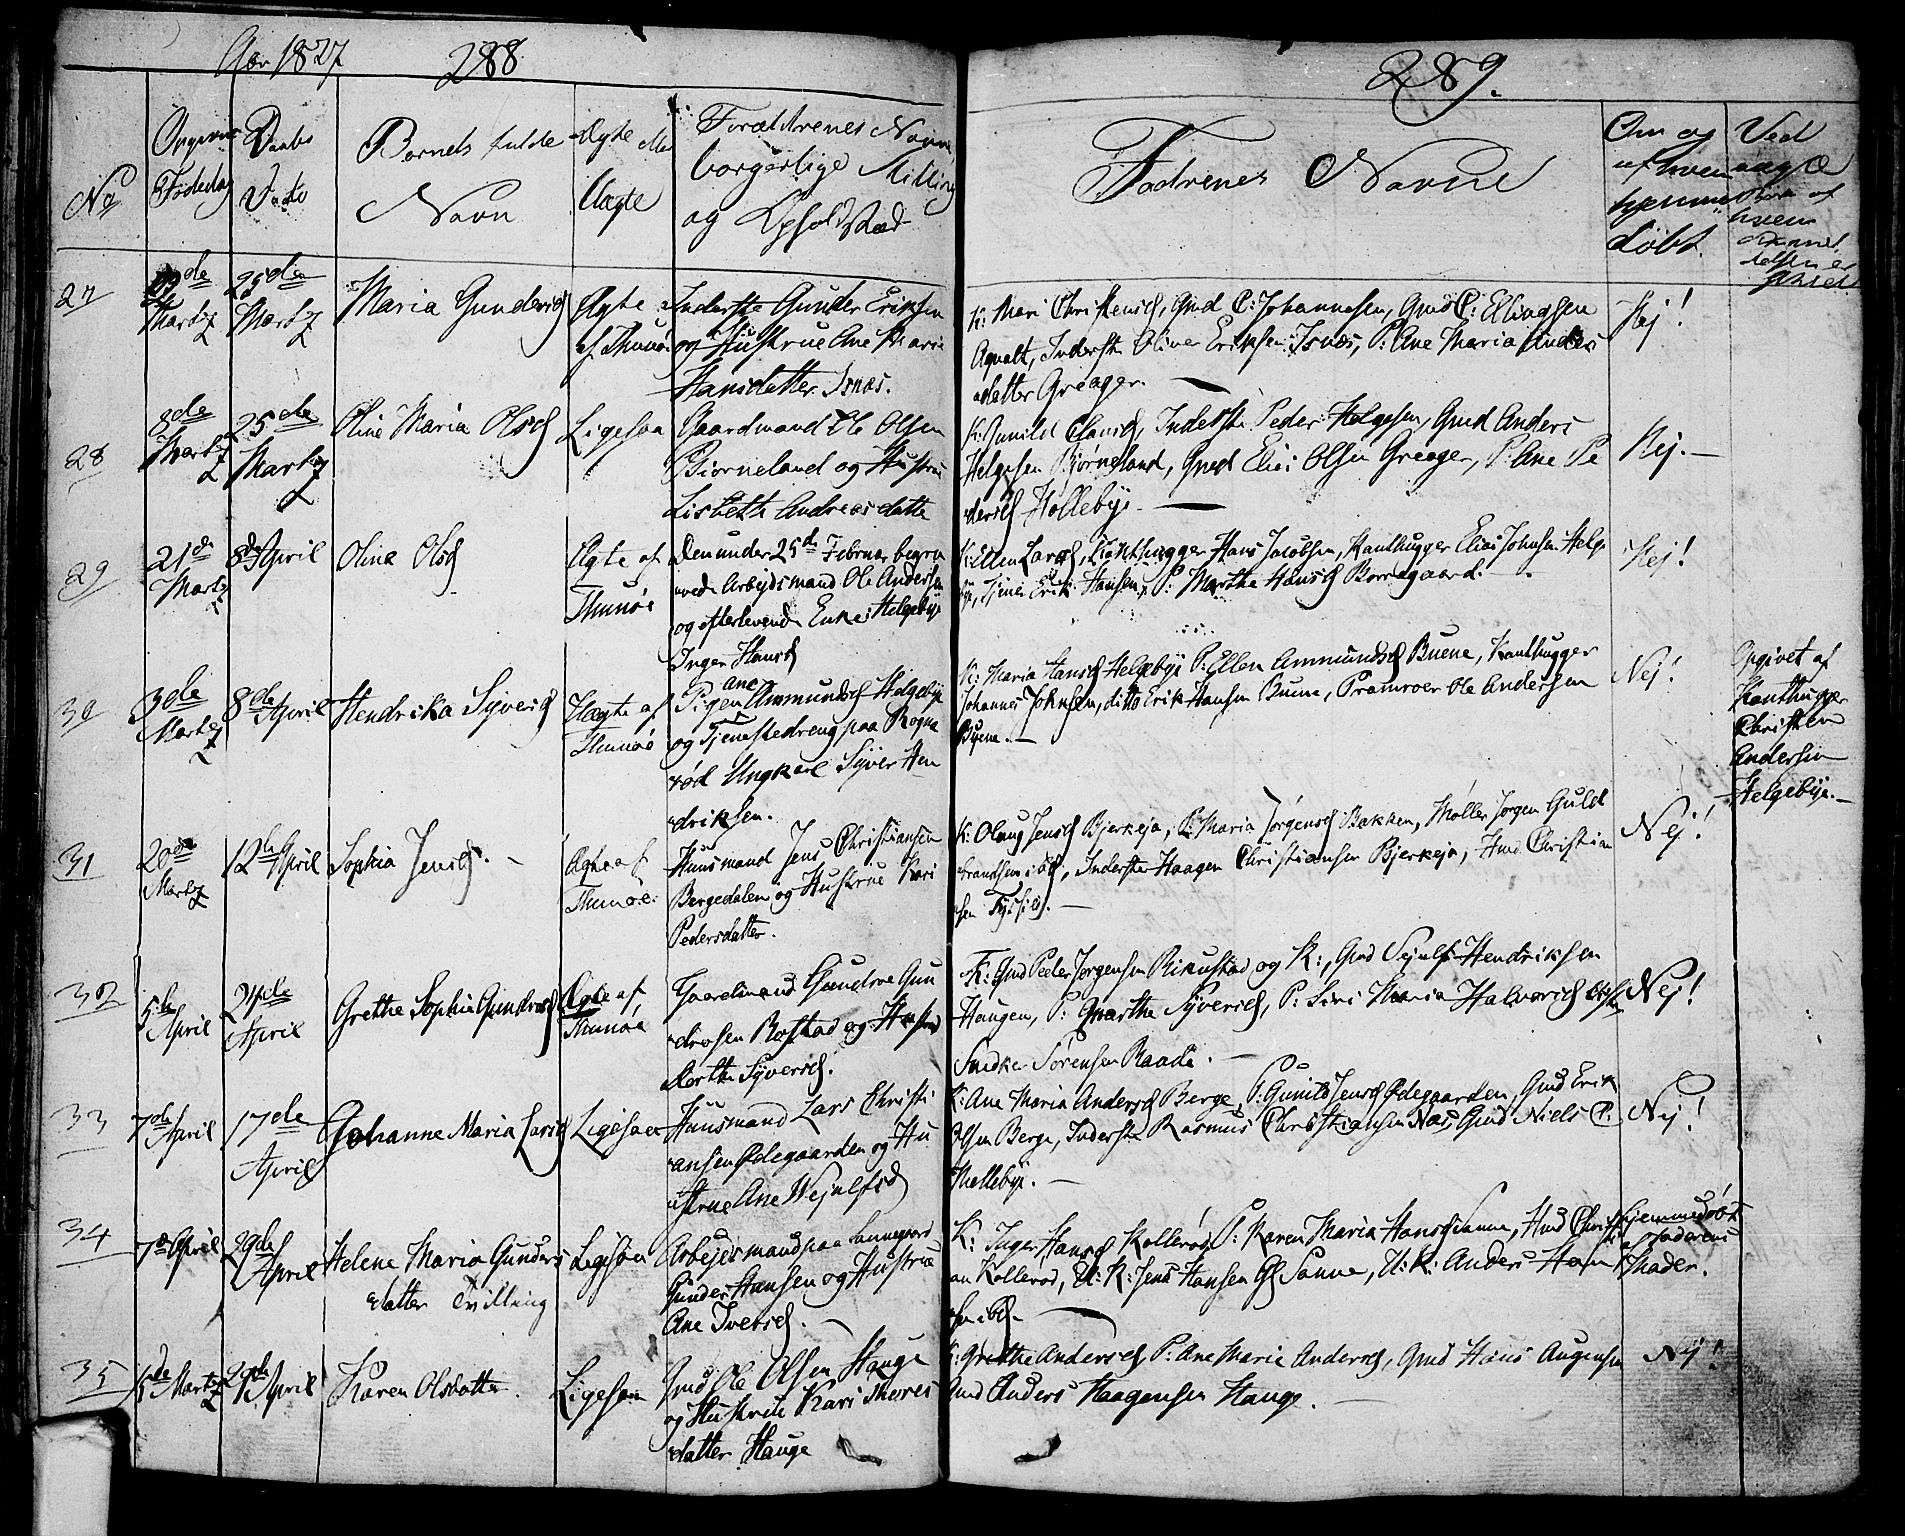 Aar 1827
288
289.
No
Opgivne Fødedag
Daabs Dato
Barnets fulde Navn
Ægte eller Uægte
Forældrenes Navne,
borgerlige Stilling
og Opholdsted
Faddrenes Navne
Om og
af hvem
hjemme
døbt.
Ved
uægte
Børn af
hvem
27
Martz
25de
Martz
Maria Gundersd
Ægte
af Thunøe
Inderste Gunder Eriksen
og Hustrue Ane Marie
Hansdatter Isnæs.
K: Mari Christensd, Gmd C: Johannesen, Gmd P: Ellingsen
Agnalt, Inderste Oliver Eriksen Isnæs, P: Ane Maria Anders
datter Greager. —
Nej!
28
8de
Martz
25de
Martz
Oline Maria Olsd
Ligesaa
Gaardmand Ole Olsen
Biørneland og Hustrue
Lisbeth Andreasdatte
K: Gunild Clausd, Inderste Peder Helgesen, Gmd Anders
Helgesen Bjørneland, Gmd Elias Olsen Greager, P: Ane Pe
dersd Hollebye. —
Nej. —
29
21de
Martz
8de April
Olina Olsd
Ægte af
Thunøe
Den under 25de Februar begra
vede Arbejdsmand Ole Andersen
og efterlevende Enke Helgebye
Inger Hansd
K: Ellen Larsd, Kanthugger Hans Jacobsen, Kanthugger Elias Johnsen Helge
bye, Tjener Erik Hansen, P: Marthe Hansd Borregaard. —
Nej!
30
3de
Martz
8de April
Hendrika Syversd
Uægte af
Thunøe
Pigen Ane Ammundsd Helgebye
og Tjenestedreng paa Rogne
rød Ungkarl Syver Hen
driksen.
K: Maria Hansd Helgebye P: Ellen Ammundsd Buene, Kanthugger
Johannes Johnsen, ditto Erik Hansen Buene, Pramroer Ole Andersen
Buene. —
Nej!
Opgivet af
Kanthugger
Christen
Andersen
Helgebye. —
31
20de
Martz
12te April
Sophia Jensd. —
Ægte af
Thunøe.
Huusmand Jens Christiansen
Bergedalen og Hustrue Kari
Pedersdatter.
K: Olaug Jensd Bjerkeja, P: Maria Jørgensd Bakken, Møller Jørgen Guld
brandsen ibd, Inderste Haagen Christiansen Bjerkeja, Hmd Christian
sen
Nej!
32
5te
April
24de
April
Grethe Sophia Gundersd
Ægte af
Thunøe
Gaardmand Gundroe Gun
drosen Rostad og Hustrue
Dorthe Syversd.
K: Gmd Peder Jørgensen Rikustad og K:, Gmd Sejulf Hendriksen
Haugen, P: Marthe Syversd, P: Siri Maria Halvorsd ibd,
Snedker Sørensen Raade. —
Nej!
33
7de
April
17de
April
Johanne Maria Larsd
Ligesaa
Huusmand Lars Christi
ansen Ødegaarden og Hu
strue Ane Wejulfsd
K: Ane Maria Andersd Berge, P: Gunild Jensd Ødegaarden, Gmd Erik
Olsen Berge, Inderste Rasmus Christiansen Næs, Gmd Niels P:
Møllebye. —
Nej!
34
7de April
29de
April
Helene Maria Gunders
datter Tvilling
Ligesaa
Arbejdsmand paa
Gunder Hansen og Hustrue
Ane Iversd. —
K: Inger Hansd Kollerød, P: Karen Maria Hansd Sanne, Hmd Christi
an Kollerød, U: K: Jens Hansen Gl Sanne, U: K: Anders Han
sen ibd. —
Hjemmedøbt
af Faderens
Moder.
35
5de Martz
29de April
Karen Olsdatte.
Ligesaa
Gmd Ole Olsen Hauge
og Hustrue Kari Thores
datter Hauge
K: Grethe Andersd, P: Ane Marie Andersd, Gmd Hans Augensen
Gmd Anders Haagensen Hauge. —
Nej!